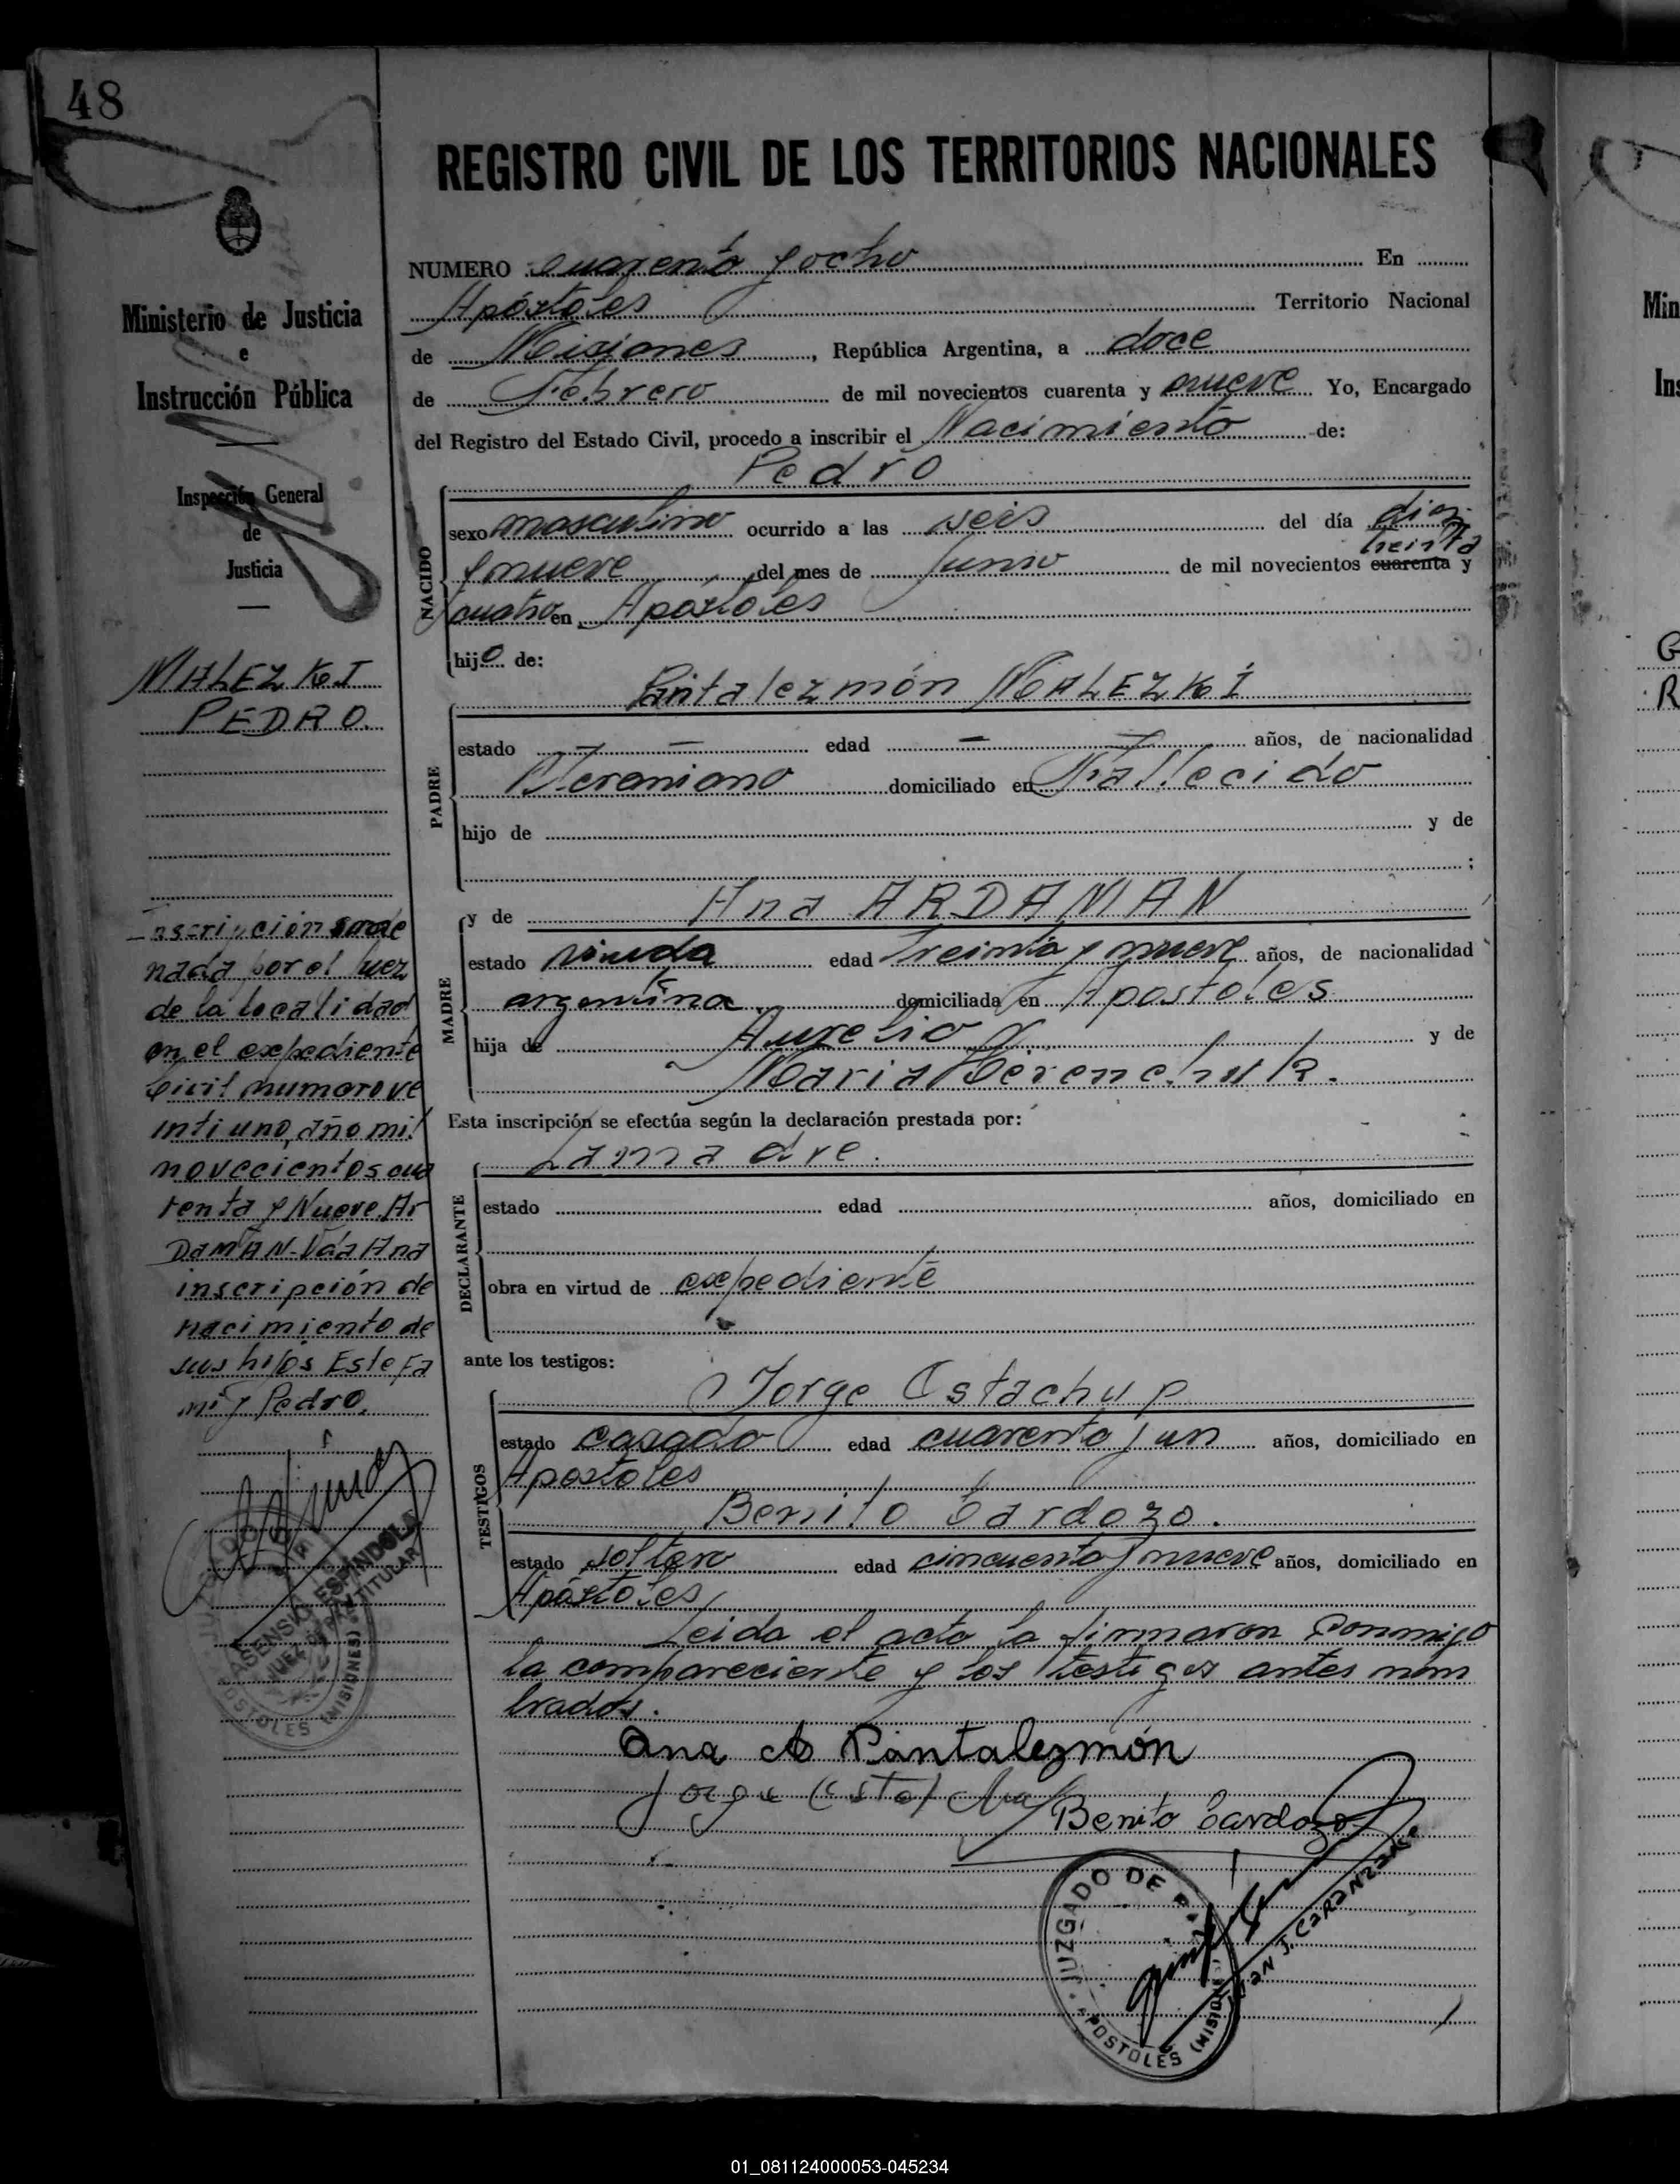 48
REGISTRO CIVIL DE LOS TERRITORIOS NACIONALES
Ministerio de Justicia
e
Instrucción Pública
Inspección General
de
Justicia
MALEZKI
PEDRO.
Inscripción orde
nada por el juez
de la localidad
en el expediente
Civil numero ve
inti uno, año mil
novecientos cua
renta y Nueve. Ar
DAMAN-Vda Ana
inscripción de
nacimiento de
sus hijos Estefa
nia y Pedro.
ASENSIO ESPINDOLA
JUEZ DE PAZ TITULAR
APOSTOLES (MISIONES)
NUMERO cuarenta y ocho En
Apóstoles Territorio Nacional
de Misiones, República Argentina, a doce
de Febrero de mil novecientos cuarenta y nueve Yo, Encargado
del Registro del Estado Civil, procedo a inscribir el Nacimiento de:
Pedro
NACIDO
sexo masculino ocurrido a las seis del día diez
treinta
y nueve del mes de Junio de mil novecientos cuarenta y
cuatro en Apóstoles
hijo de:
Pantalezmón MALEZKI
PADRE
estado — — edad — — años, de nacionalidad
Ucraniano domiciliado en Fallecido
hijo de y de
;
MADRE
y de Ana ARDAMAN
estado viuda edad treinta y nueve años, de nacionalidad
argentina domiciliada en Apostoles
hija de Aurelio y de
Maria
Esta inscripción se efectúa según la declaración prestada por:
La madre.
DECLARANTE
estado edad años, domiciliado en
obra en virtud de expediente
ante los testigos:
TESTIGOS
Jorge Ostachup
estado casado edad cuarenta y un años, domiciliado en
Apostoles
Benito Cardozo.
estado soltero edad cincuenta y nueve años, domiciliado en
Apóstoles
Leida el acta la firmaron conmigo
la compareciente y los testigos antes nom
brados.
Ana A Pantalezmón
Jorge
Benito Cardozo
JUZGADO DE PAZ
APOSTOLES (MISIONES)
JUAN J. CARANZANO
01_081124000053-045234